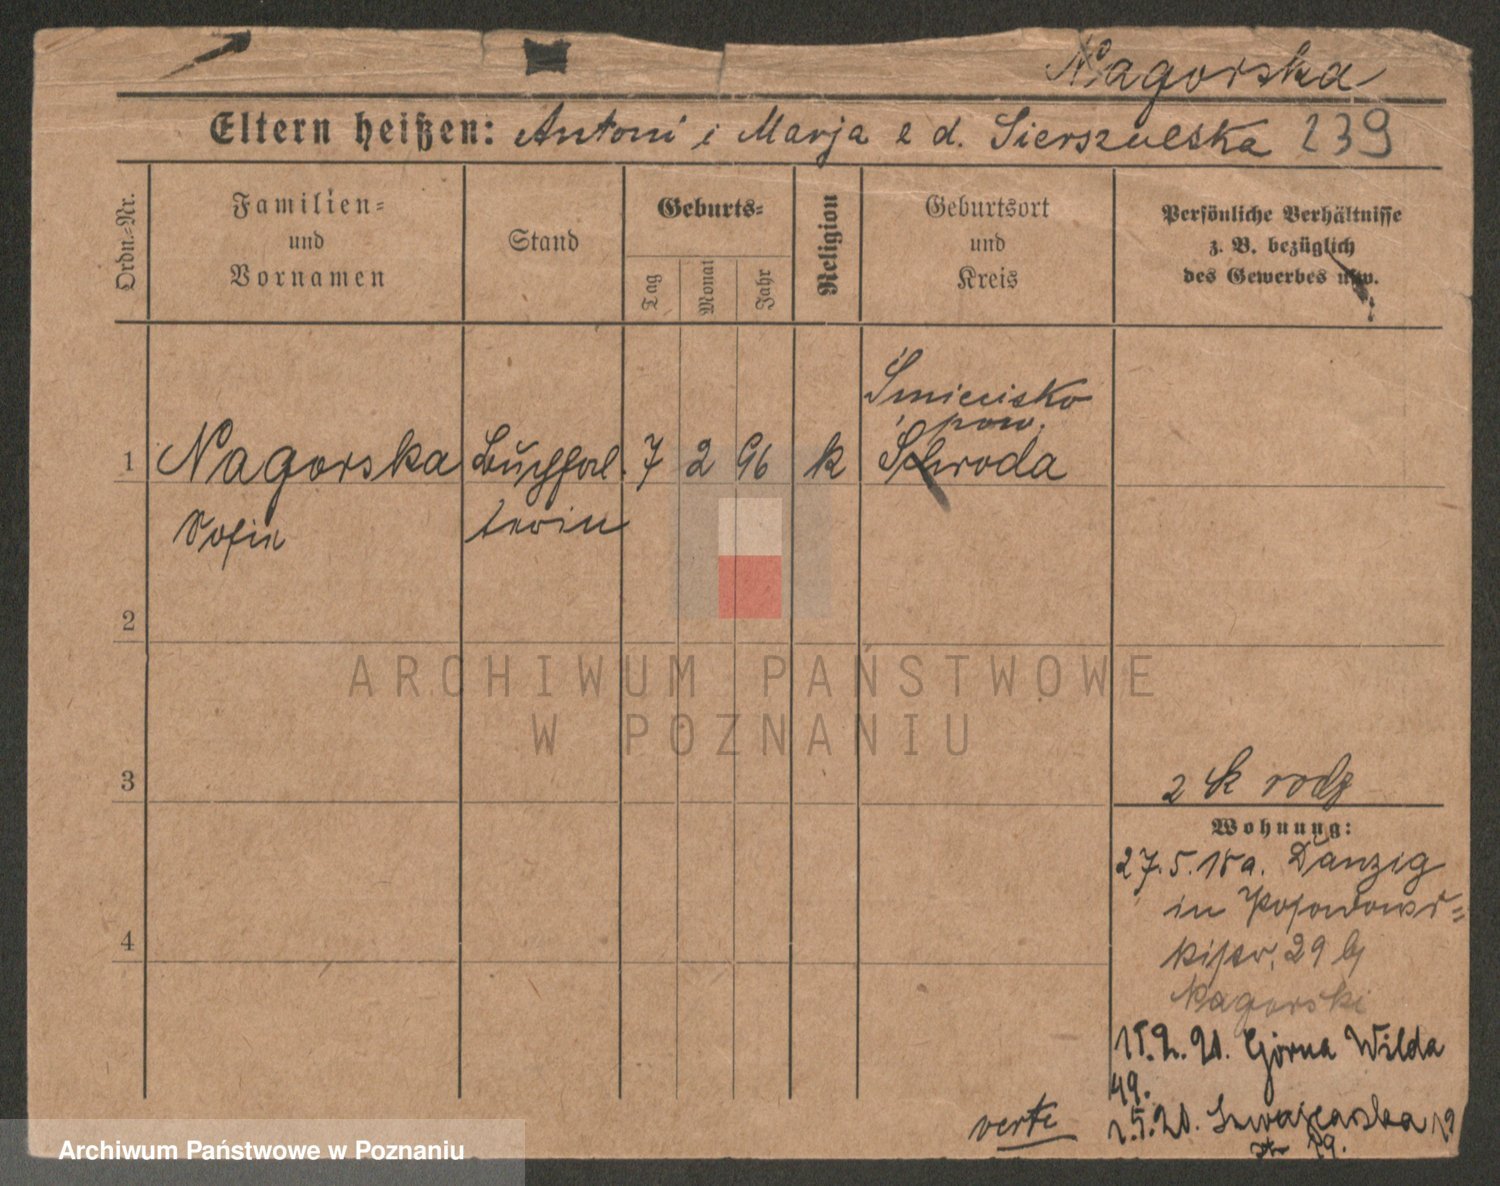 Nagorska
Eltern heißen: Antoni i Marja z d. Sierszulska 239
Ordn.-Nr.
Familien-
und
Vornamen
Stand
Geburts-
Tag
Monat
Jahr
Religion
Geburtsort
und
Kreis
Persönliche Verhältnisse
z. B. bezüglich
des Gewerbes usw.
Smiecisko
pow.
1 Nagorska Buchhal- 7 2 96 k Schroda
Sofie terin
2
ARCHIWUM PAŃSTWOWE
W POZNANIU
3
z k rodz
Wohnung:
27.5.18 a. Danzig
in Posadows-
kistr. 29 b/
Nagorski
4
15.2.20. Górna Wilda
49.
2.5.20. Szwajcarska 19
verte
Archiwum Państwowe w Poznaniu